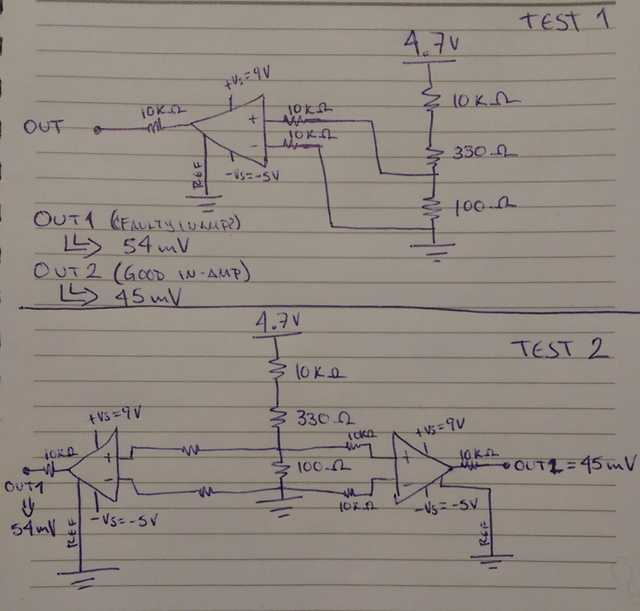 TEST 1
4.7V
+Vs=9V
10KΩ
10KΩ
10KΩ
+
10KΩ
OUT
-
330Ω
REF
-Vs=-5V
100Ω
OUT1 (FAULTY IN-AMP?)
↳ 54mV
OUT2 (GOOD IN-AMP)
↳ 45mV
4.7V
TEST 2
10KΩ
+Vs=9V
330Ω
+Vs=9V
10KΩ
10KΩ
+
+
10KΩ
100Ω
OUT2=45mV
OUT1
-
-
10KΩ
54mV
-Vs=-5V
-Vs=-5V
REF
REF